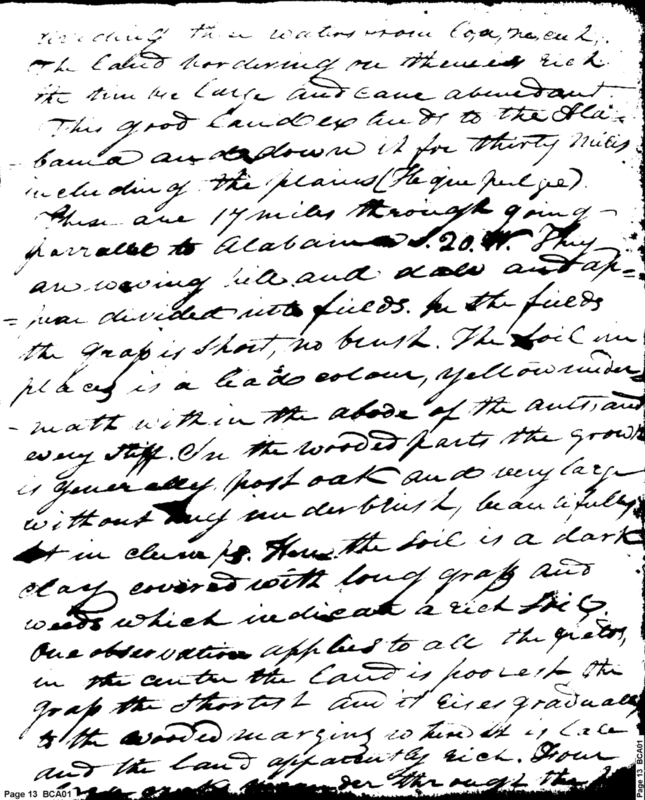 dividing their waters from
the land bordering on them is rich
the timber large and cane abundant.
This good land extends to the Ala-
- bama and down it for thirty miles
including the plains
These are 17 miles through going
parralel to Alabama S. 20. W. They
are waving hill and dale and ap-
= pear divided into fields. In the fields
the grass is short, no brush. The soil in
places is a lead colour, yellow under
- neath within the abode of the ants, and
very stiff. In the wooded parts the growth
is generally post oak and very large
without any underbrush, beautifully
set in clumps. Here the soil is a dark
clay covered with long grass and
weeds which indicate a rich soil.
One observation applies to all the fields,
in the center the land is poorest the
grass the shortest and it rises gradually
to the wooded margins where it is
and the land apparently rich. Four
through the
Page 13 BCA01
Page 13 BCA01